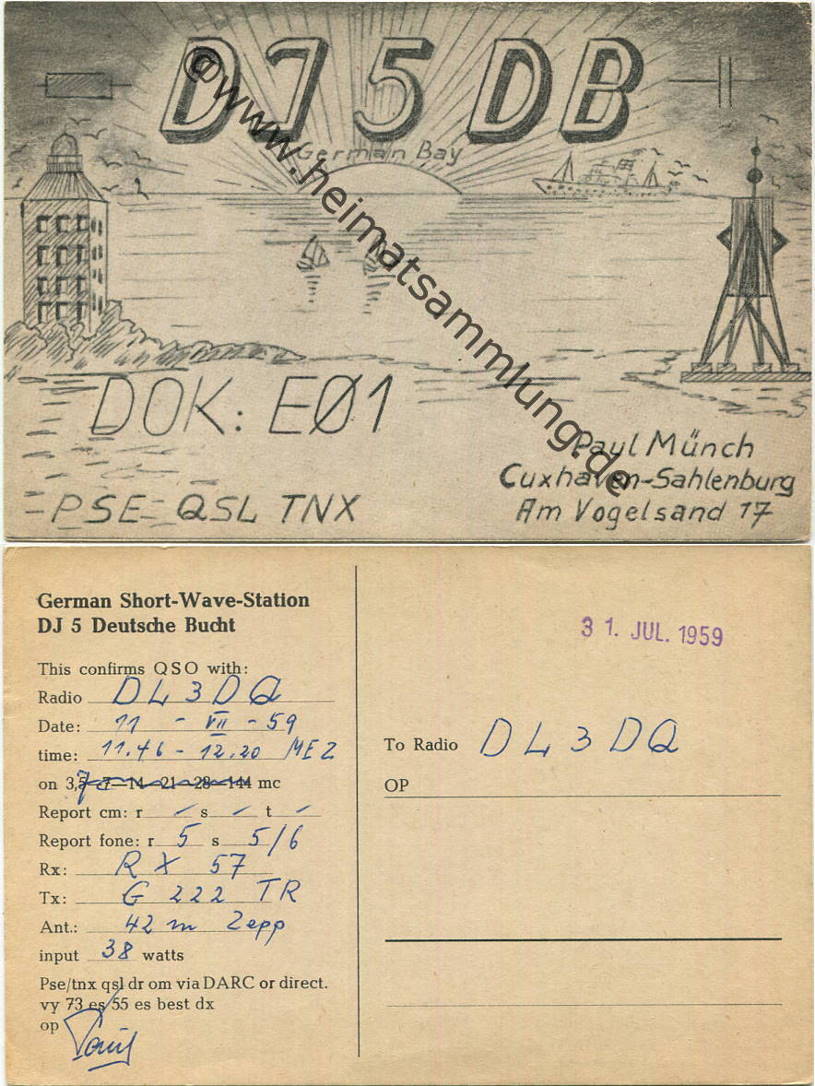 DJ5DB
German Bay
DOK: EØ1
Paul Münch
Cuxhaven-Sahlenburg
Am Vogelsand 17
PSE QSL TNX
©www.heimatsammlung.de
German Short-Wave-Station
DJ 5 Deutsche Bucht
This confirms QSO with:
Radio DL3DQ
Date: 11 - VII - 59
time: 11.46 - 12.20 MEZ
on 3,5—7—14—21—28—144 mc
Report cm: r / s / t /
Report fone: r 5 s 5/6
Rx: RX 57
Tx: G 222 TR
Ant.: 42 m Zepp
input 38 watts
Pse/tnx qsl dr om via DARC or direct.
vy 73 es 55 es best dx
op Paul
31. JUL. 1959
To Radio DL3DQ
OP